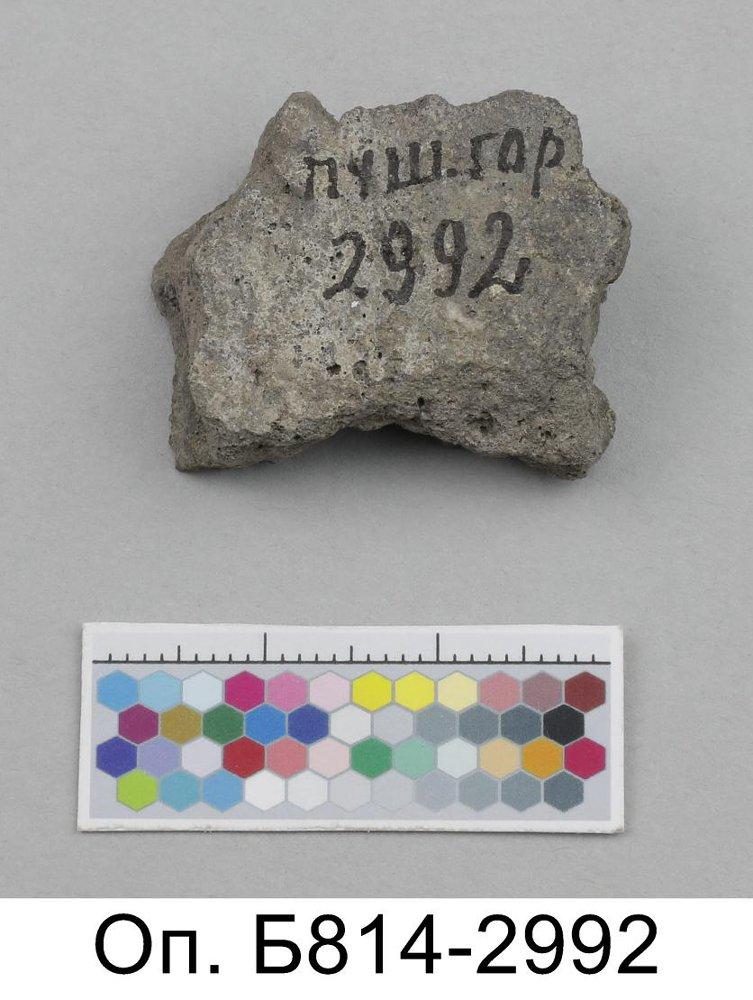 ПУШ.ГОР
2992
Оп. Б814-2992